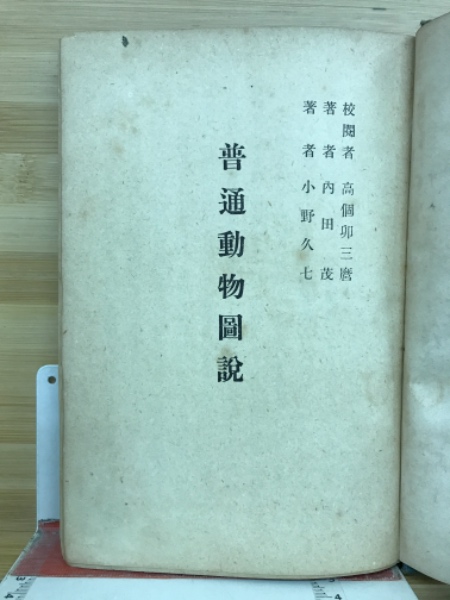 校閲者 高個卯三麿
著者 內田茂
著者 小野久七
普通動物圖說